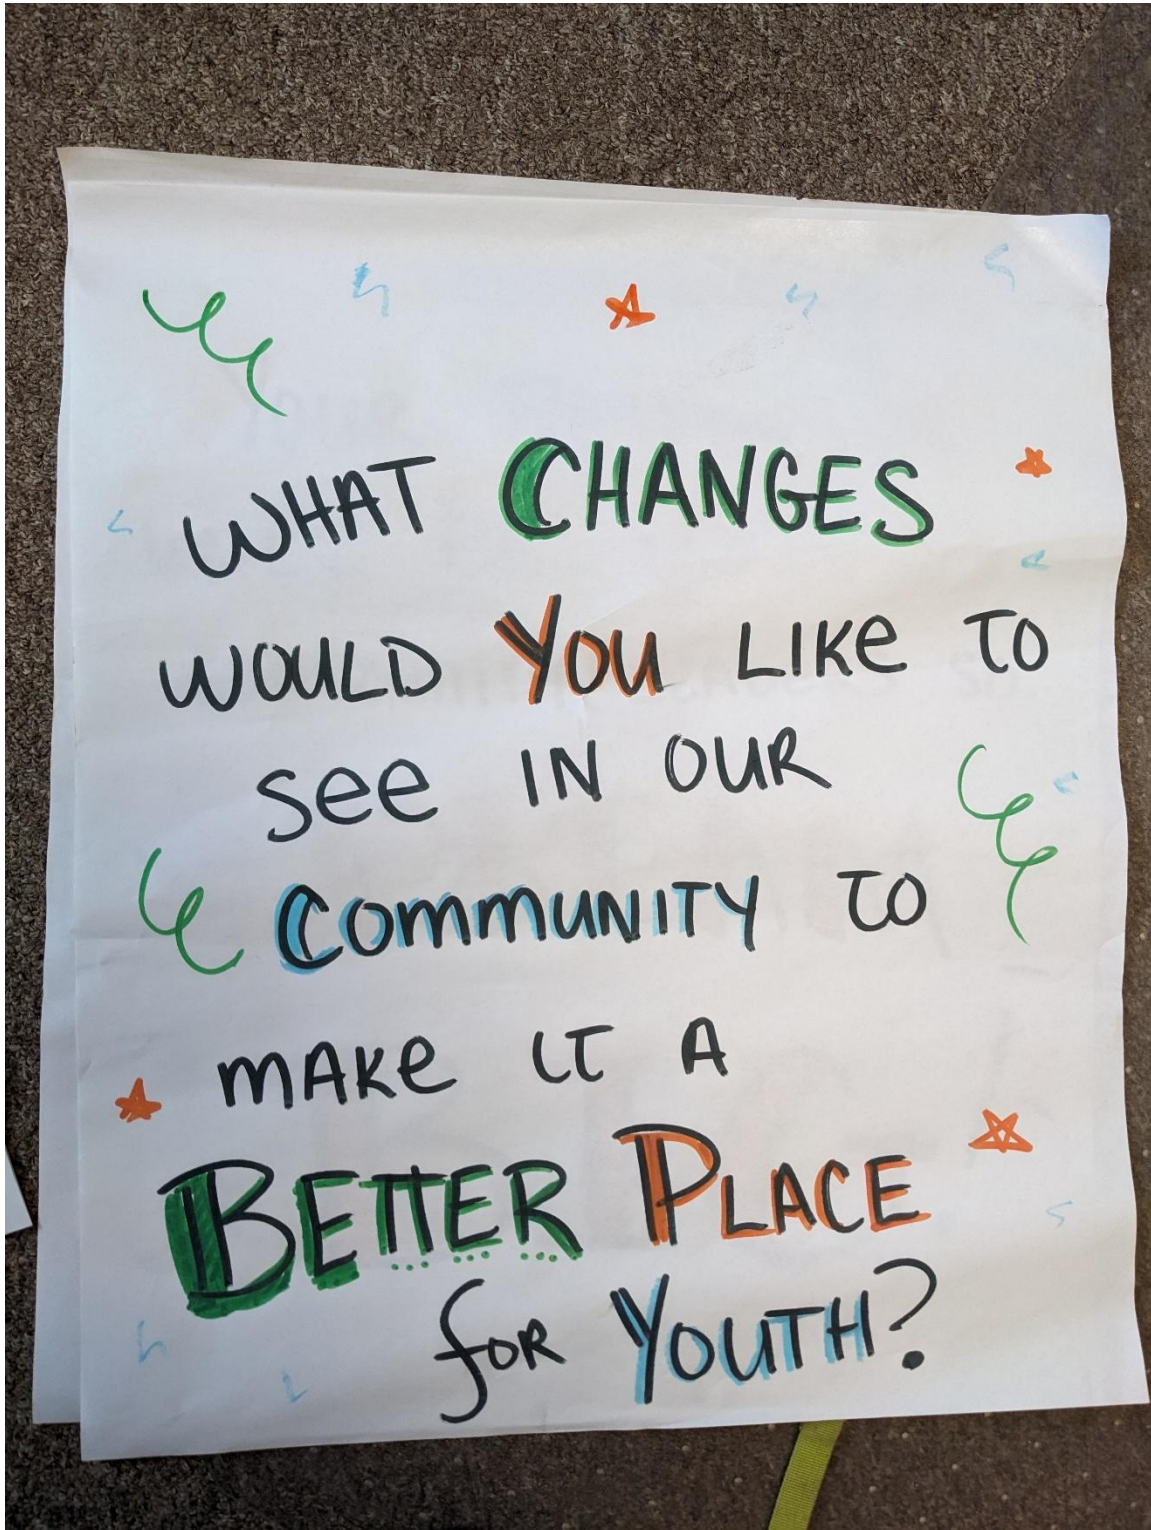 WHAT CHANGES
WOULD YOU LIKE TO
See IN OUR
COMMUNITY TO
MAKe IT A
BETTER PLACE
foR YOUTH?